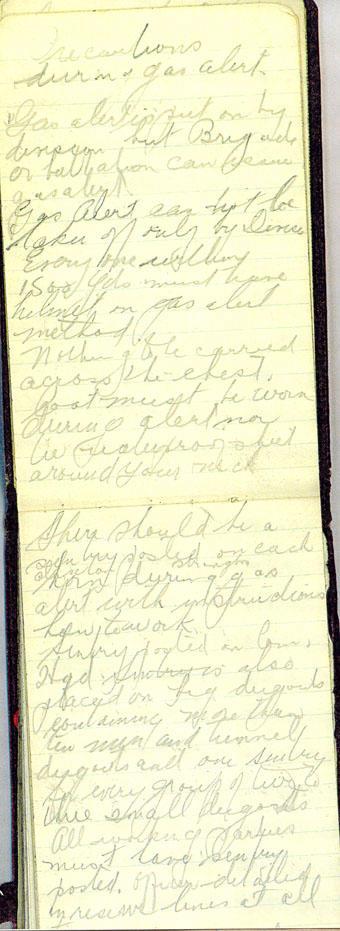 Precautions
during gas alert.
Gas alert is put on by
division but Brigade
or battalion can issue
gas alert
Gas Alert can not be
taken of only by Division
Every one within
1500 yds must have
helmet on gas alert
method.
Nothing to be carried
across the chest.
coat must be worn
during alert nor
tie waterproof sheet
around your neck
There should be a
sentry posted on each
horn during gas
alert with instructions
how to work
Sentry posted on
Hqd. Sentry is also
placed on big dugouts
containing more than
ten men and tunnel
dugouts and one sentry
for every group of two to
three small dugouts
All working parties
must have sentry
posted. Officer detailed
in reserve lines at all